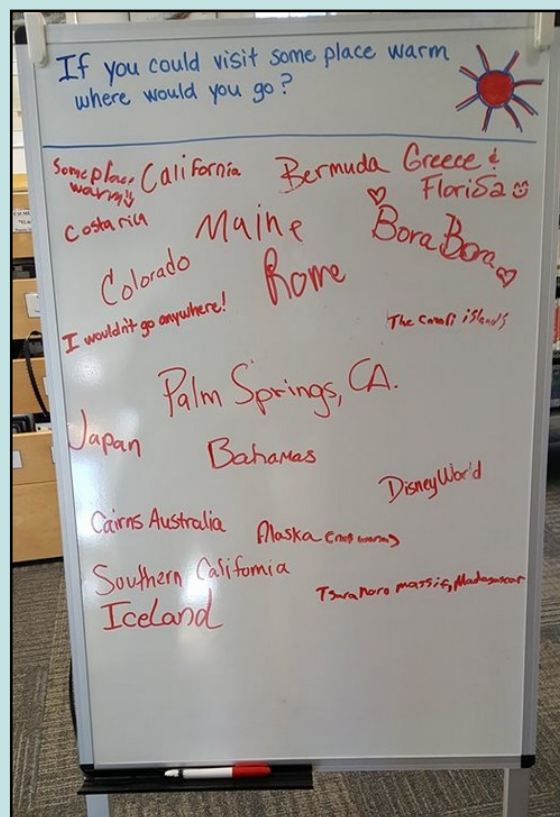 If you could visit some place warm
where would you go?
Some place
warm
California
Bermuda
Greece &
Florisa
Costa rica
Maine
Bora Bora
Colorado
Rome
I wouldn't go anywhere!
The islands
Palm Springs, CA.
Japan
Bahamas
Disney World
Cairns Australia
Alaska (not warm)
Southern California
Tsaranoro massif, Madagascar
Iceland